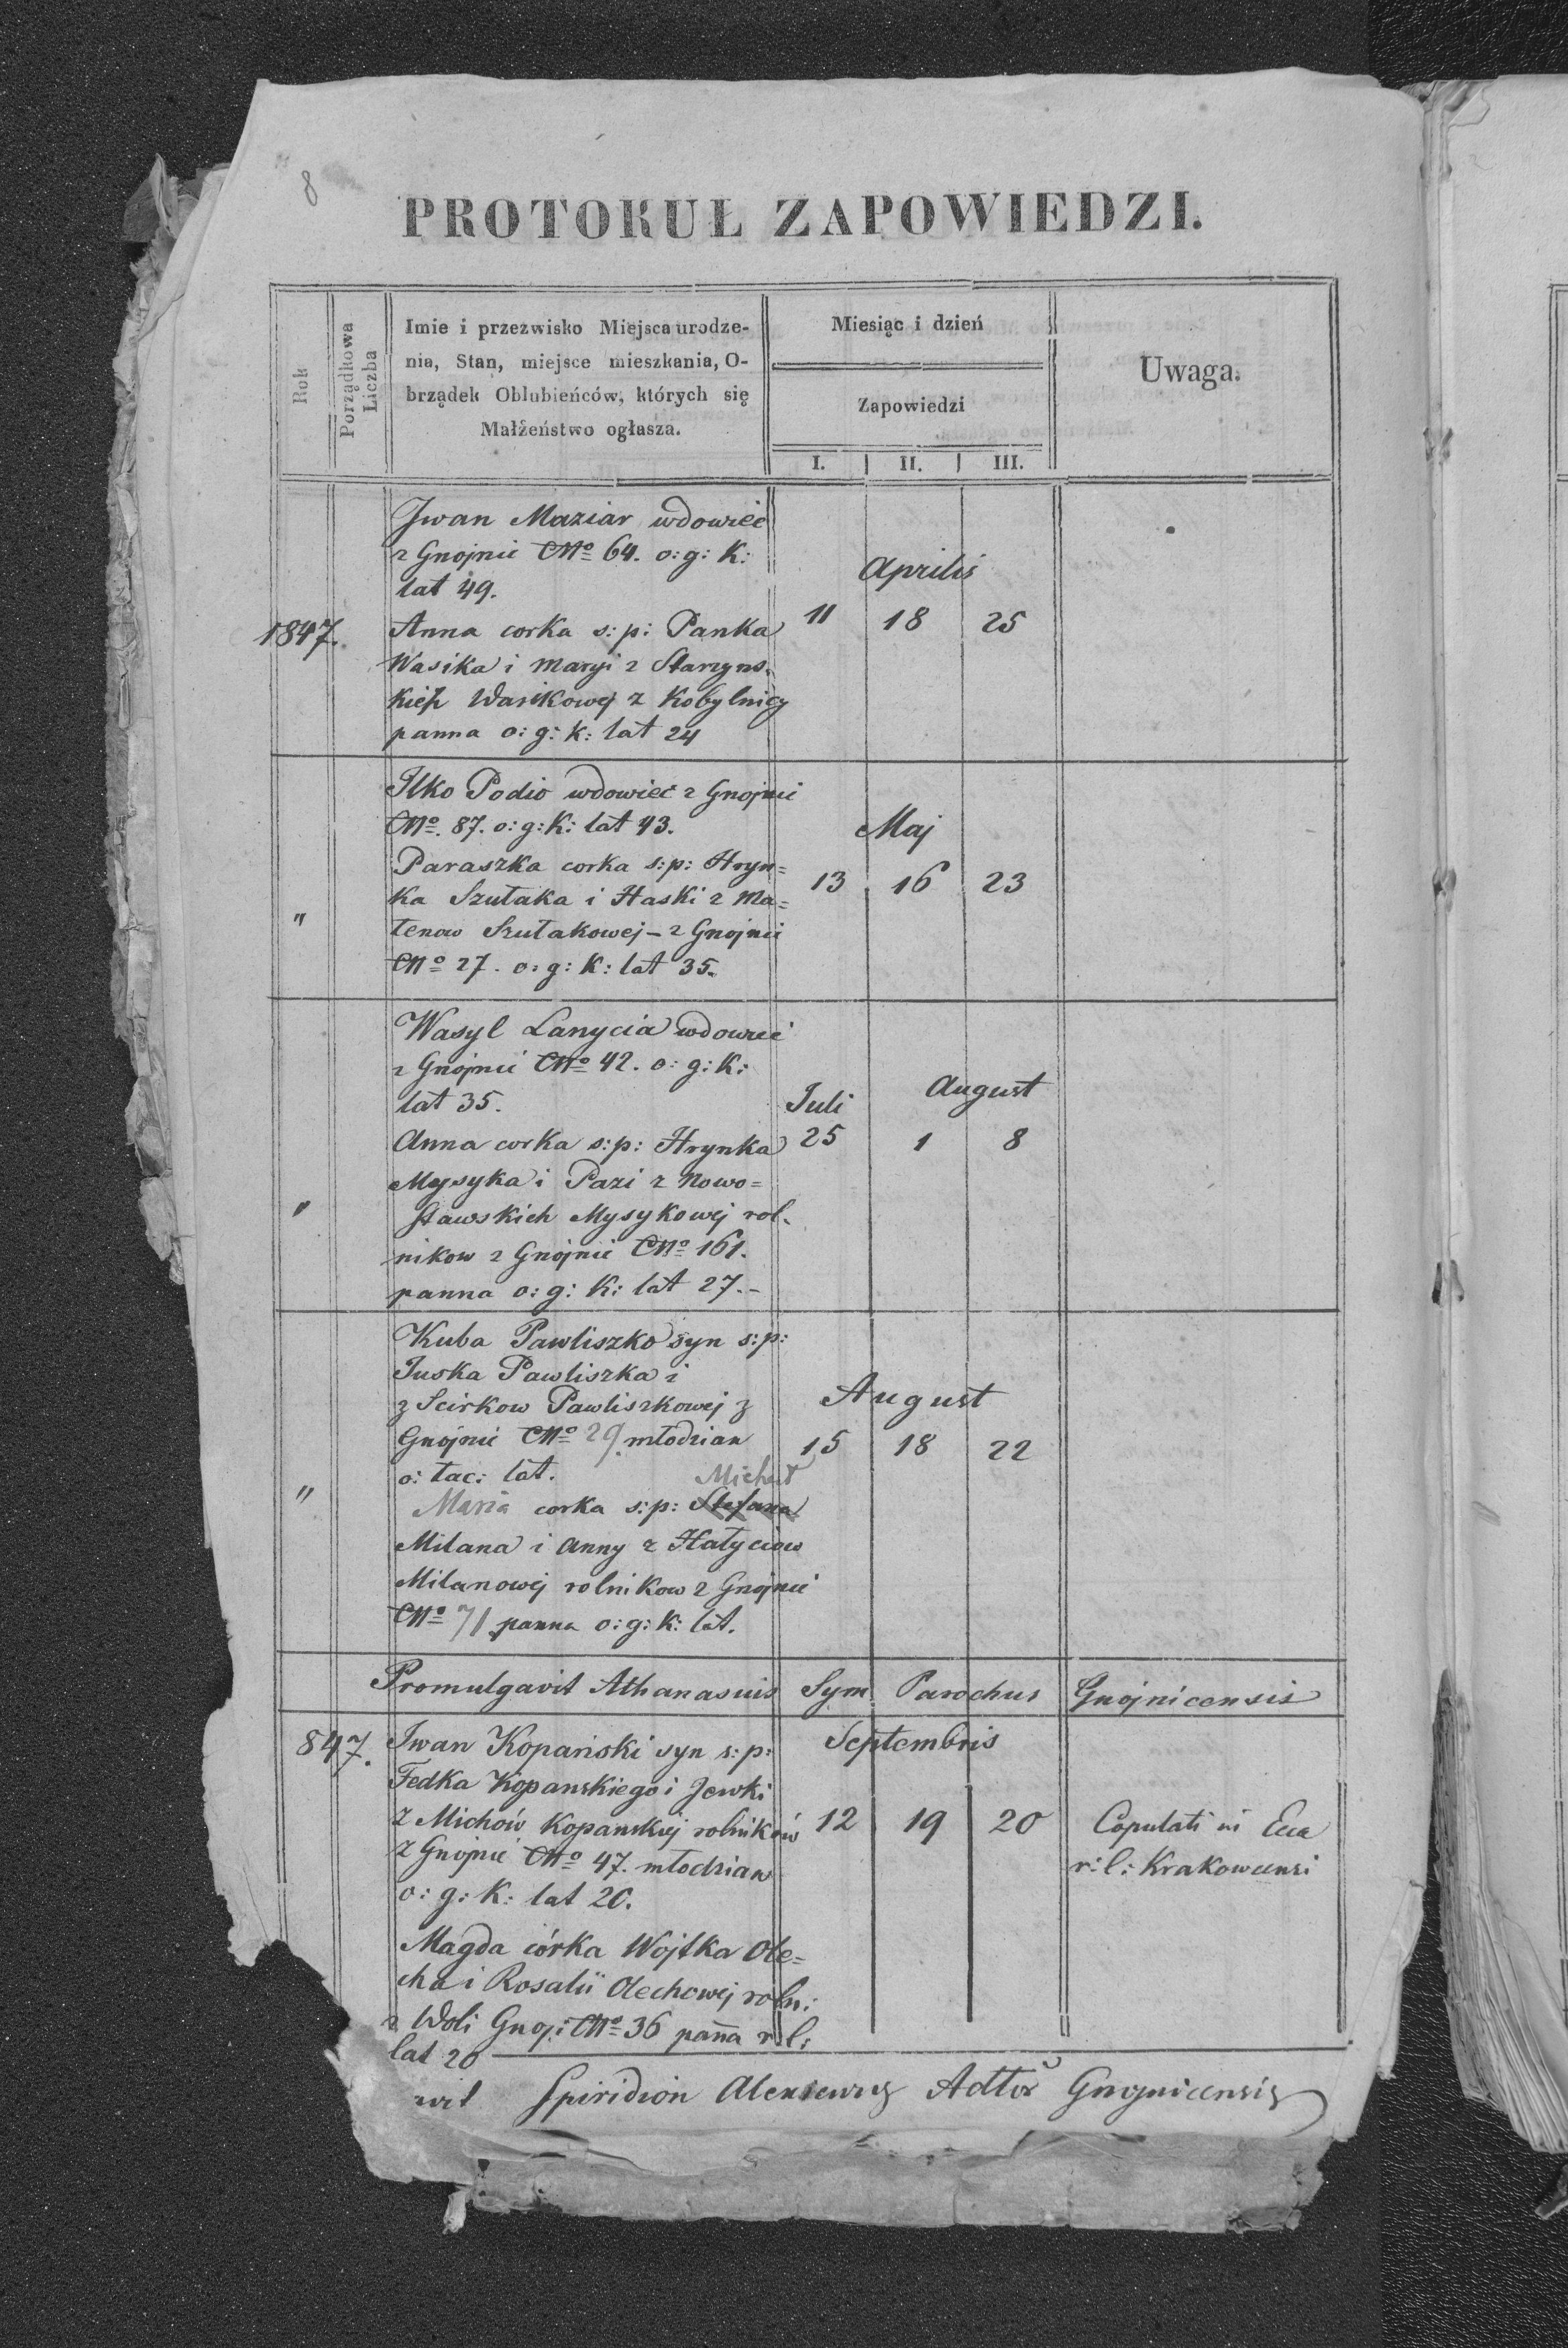 8
PROTOKUŁ ZAPOWIEDZI.
Rok
Porządkowa
Liczba
Imie i przezwisko Miejsca urodze-
nia, Stan, miejsce mieszkania, O-
brządek Oblubieńców, których się
Małżeństwo ogłasza.
Miesiąc i dzień
Zapowiedzi
I. II. III.
Uwaga.
Jwan Maziar wdowiec
z Gnojnic CNo 64. o: g: K:
lat 49.
Aprilis
1847. Anna corka s: p: Panka 11 18 25
Wasika i Maryi z Starzyns.
kich Wasikowej z Kobylnicy
panna o: g: K: lat 24
Ilko Podio wdowiec z Gnojnic
CNo. 87. o: g: K: lat 43.
Maj
Paraszka corka s: p: Hryn=
13 16 23
ka Szutaka i Haski z Ma=
" tenow Szutakowej – z Gnojnic
CNo 27. o: g: K: lat 35.
Wasyl Lanycia wdowiec
z Gnojnic CNo 42. o: g: K:
lat 35. Juli August
Anna corka s: p: Hrynka 25 1 8
Mysyka i Pazi z Nowo=
" stawskich Mysykowej rol.
nikow z Gnojnic CNo 161.
panna o: g: K: lat 27. –
Kuba Pawliszko syn s: p:
Juska Pawliszka i
z Scirkow Pawliszkowej z August
Gnojnic CNo 29. młodzian 15 18 22
o: łac: lat. Michał
" Maria corka s: p: Stefana
Milana i Anny z Hałyciow
Milanowej rolnikow z Gnojnic
CNo 71 panna o: g: K: lat.
Promulgavit Athanasius Sym Parochus Gnojnicensis
847. Iwan Kopański syn s: p: Septembris
Fedka Kopanskiego i Jewki
z Michów Kopanskiej rolników 12 19 20 Copulati in Ecca
z Gnojnic CNo 47. młodzian r: l: Krakowcensi
o: g: K: lat 20.
Magda córka Wojtka Ole=
cha i Rosalii Olechowej roln:
z Woli Gnoj: CNo 36 panna r: l:
lat 20
wit Spiridion Alexiewicz Adtor Gnojnicensis